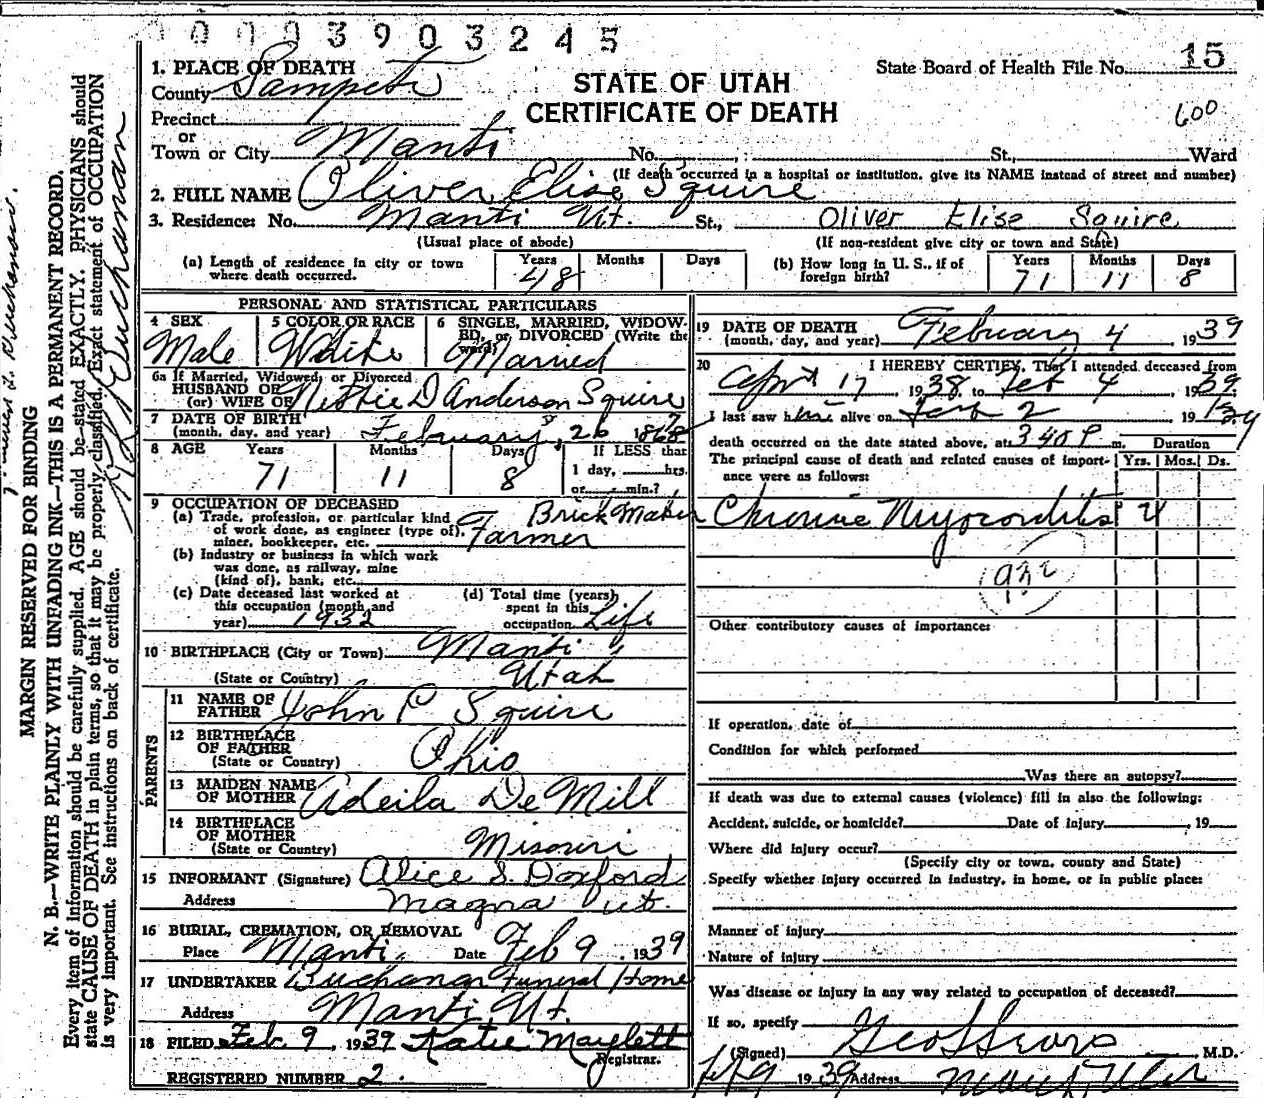 0003903245
15
1. PLACE OF DEATH
County Sampete
STATE OF UTAH
CERTIFICATE OF DEATH
State Board of Health File No. 15
600
Precinct
or
Town or City Manti No. St., Ward
(If death occurred in a hospital or institution, give its NAME instead of street and number)
2. FULL NAME Oliver Elise Squire
3. Residence: No. Manti Ut. St., Oliver Elise Squire
(Usual place of abode) (If non-resident give city or town and State)
(a) Length of residence in city or town where death occurred. Years 48 Months Days
(b) How long in U. S., if of foreign birth? Years 71 Months 11 Days 8
PERSONAL AND STATISTICAL PARTICULARS
4 SEX Male
5 COLOR OR RACE White
6 SINGLE, MARRIED, WIDOWED, or DIVORCED (Write the word) Married
6a If Married, Widowed, or Divorced
HUSBAND OF
(or) WIFE OF Nettie D Anderson Squire
7 DATE OF BIRTH
(month, day, and year) February, 26 1868 7
8 AGE Years 71 Months 11 Days 8 If LESS than 1 day, hrs. or min.?
9 OCCUPATION OF DECEASED
(a) Trade, profession, or particular kind of work done, as engineer (type of), miner, bookkeeper, etc. Brick Maker Farmer
(b) Industry or business in which work was done, as railway, mine (kind of), bank, etc.
(c) Date deceased last worked at this occupation (month and year) 1932
(d) Total time (years) spent in this occupation Life
10 BIRTHPLACE (City or Town) Manti
(State or Country) Utah
PARENTS
11 NAME OF FATHER John P Squire
12 BIRTHPLACE OF FATHER
(State or Country) Ohio
13 MAIDEN NAME OF MOTHER Adeila De Mill
14 BIRTHPLACE OF MOTHER
(State or Country) Misouri
15 INFORMANT (Signature) Alice S. Doxford
Address Magna Ut.
16 BURIAL, CREMATION, OR REMOVAL
Place Manti Date Feb 9, 1939
17 UNDERTAKER Buchanan Funeral Home
Address Manti Ut.
18 FILED Feb 9, 1939 Katie Maylett
Registrar.
REGISTERED NUMBER 2.
19 DATE OF DEATH
(month, day, and year) February 4, 1939
20 I HEREBY CERTIFY, That I attended deceased from
April 17, 1938 to Feb 4, 1939
I last saw him alive on 2 19
death occurred on the date stated above, at 3 40 P m. Duration
The principal cause of death and related causes of importance were as follows: Yrs. Mos. Ds.
Chronic Myocorditis 2
Other contributory causes of importance:
If operation, date of
Condition for which performed
Was there an autopsy?
If death was due to external causes (violence) fill in also the following:
Accident, suicide, or homicide? Date of injury , 19
Where did injury occur?
(Specify city or town, county and State)
Specify whether injury occurred in industry, in home, or in public place:
Manner of injury
Nature of injury
Was disease or injury in any way related to occupation of deceased?
If so, specify
(Signed) Geo L Sears M.D.
Feb 9 1939 Address
MARGIN RESERVED FOR BINDING
N. B.—WRITE PLAINLY WITH UNFADING INK—THIS IS A PERMANENT RECORD.
Every item of information should be carefully supplied. AGE should be stated EXACTLY. PHYSICIANS should
state CAUSE OF DEATH in plain terms, so that it may be properly classified. Exact statement of OCCUPATION
is very important. See instructions on back of certificate.
Buchanan